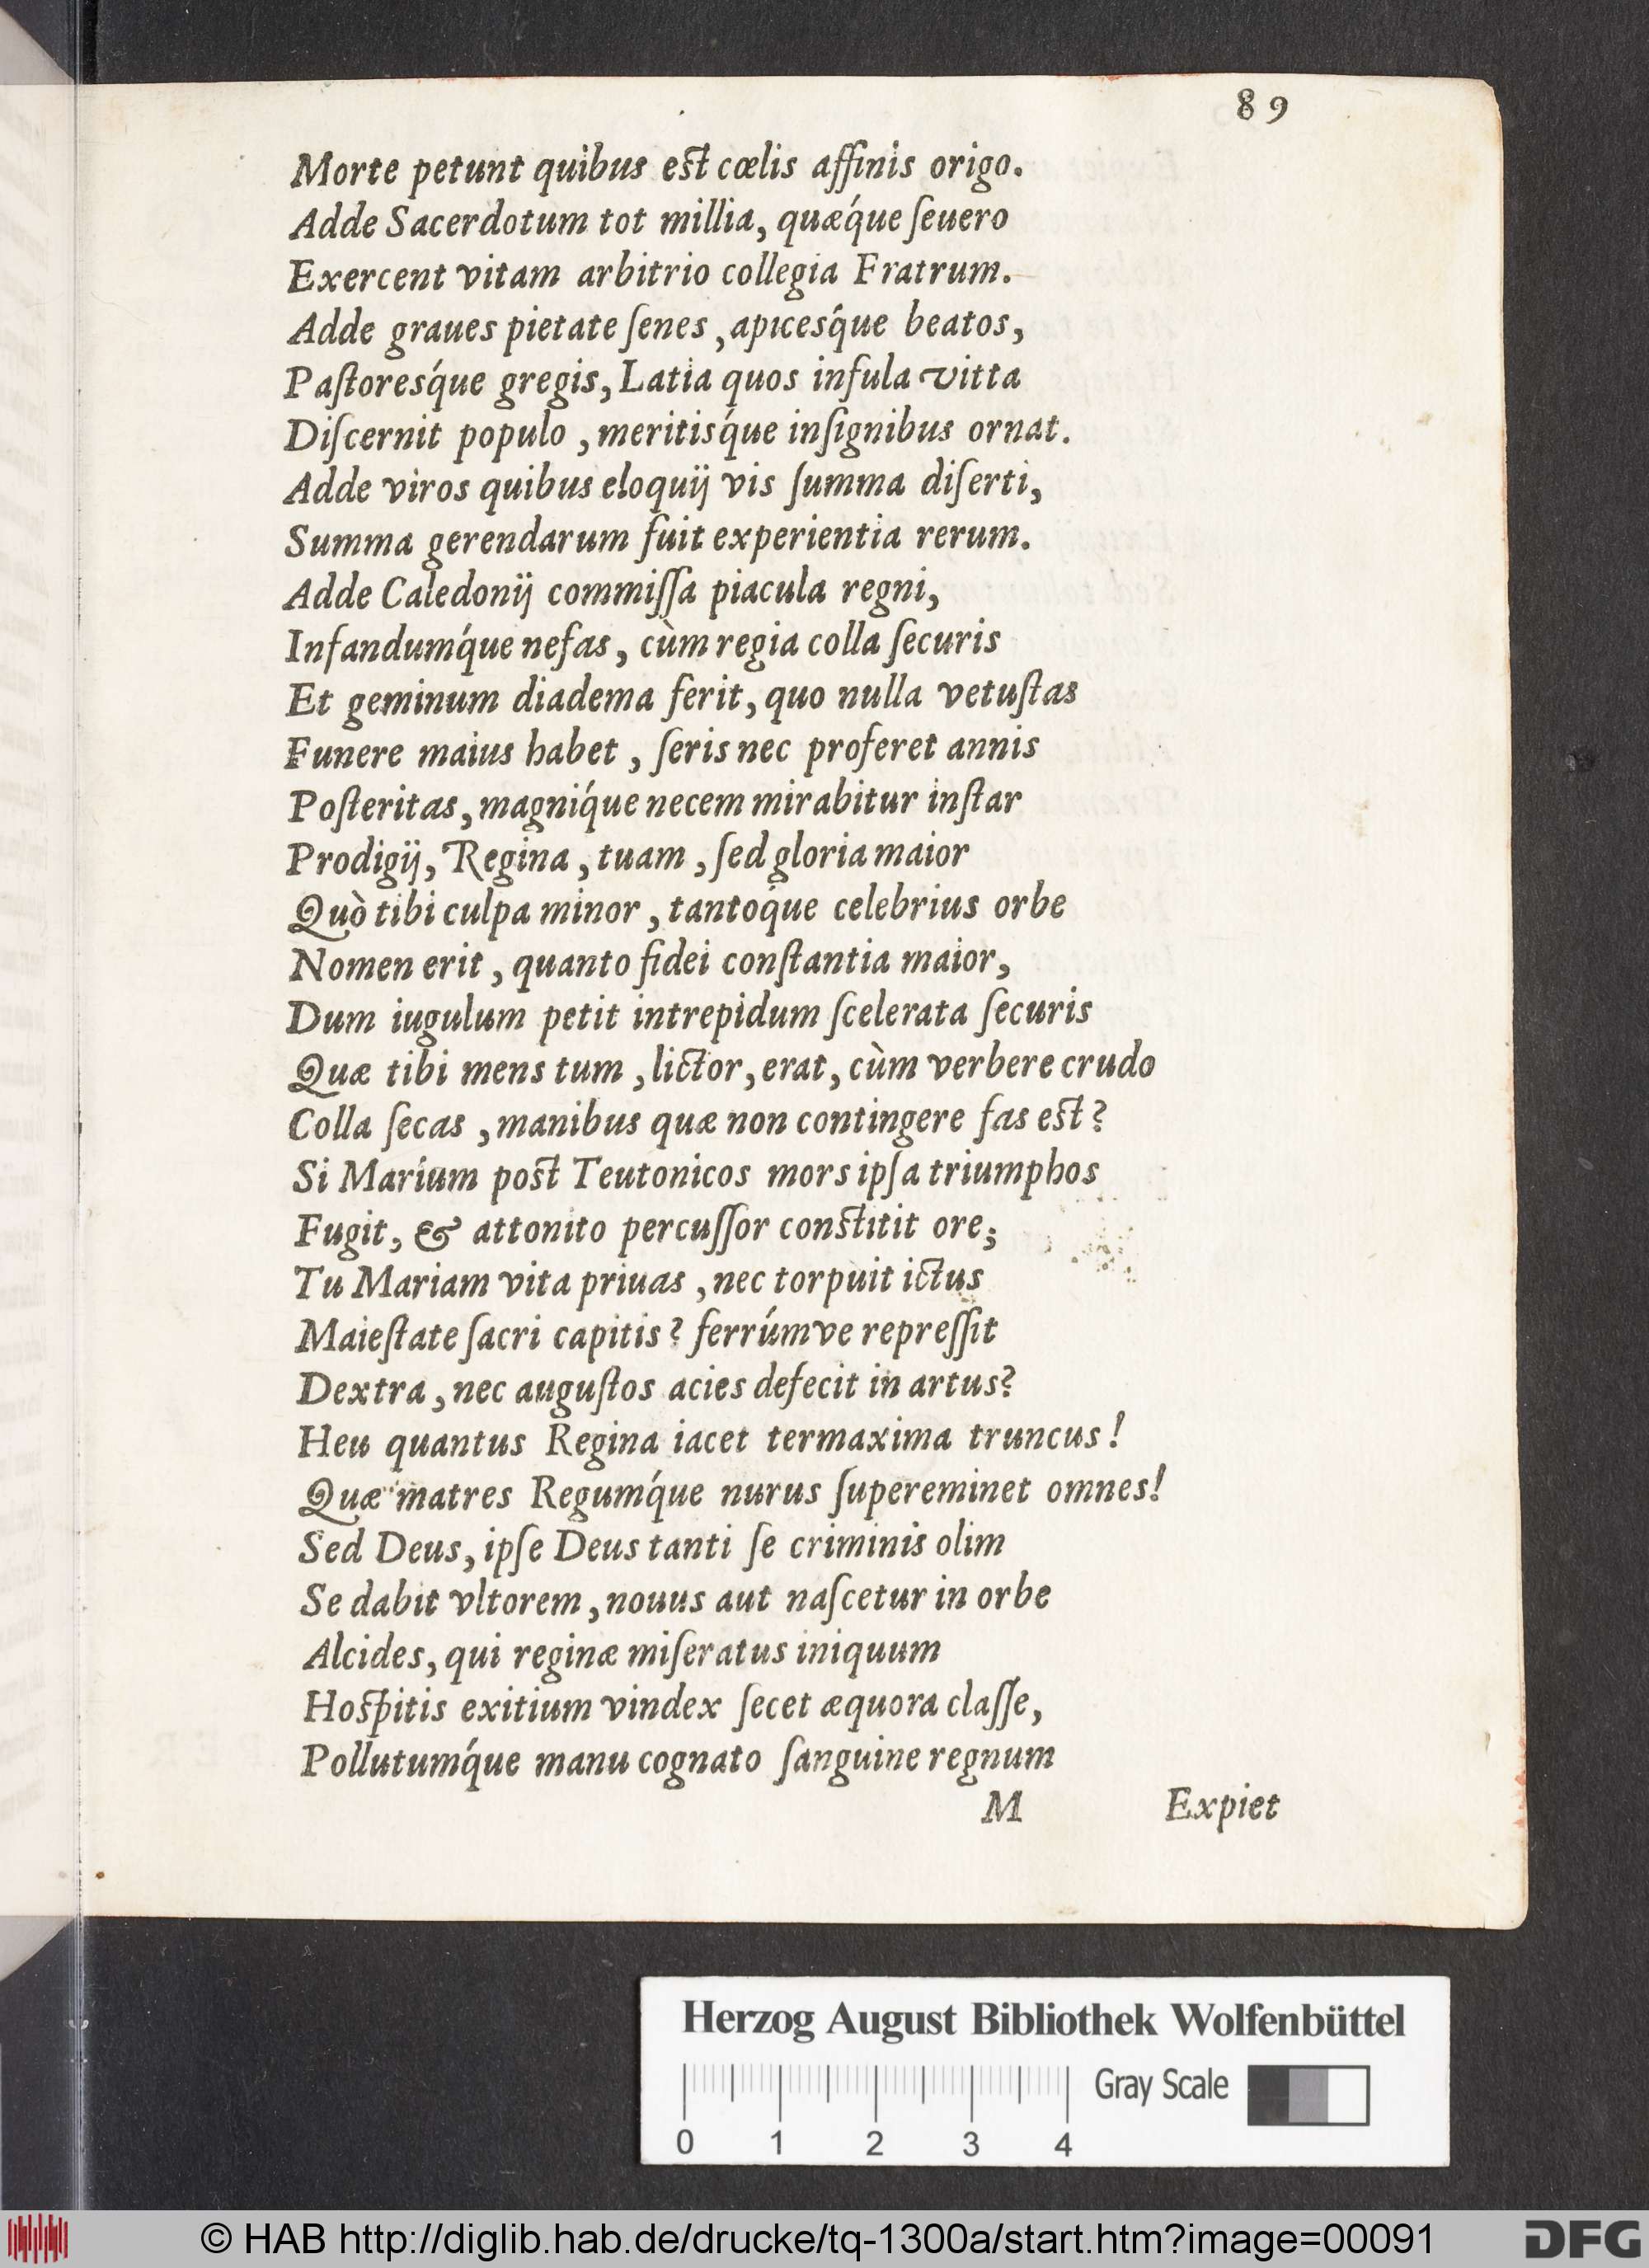 89
Morte petunt quibus est cœlis affinis origo.
Adde Sacerdotum tot millia, quæq́ue ſeuero
Exercent vitam arbitrio collegia Fratrum.
Adde graues pietate ſenes, apicesq́ue beatos,
Paſtoresq́ue gregis, Latia quos infula vitta
Diſcernit populo, meritisq́ue inſignibus ornat.
Adde viros quibus eloquij vis ſumma diſerti,
Summa gerendarum fuit experientia rerum.
Adde Caledonij commiſſa piacula regni,
Infandumq́ue nefas, cùm regia colla ſecuris
Et geminum diadema ferit, quo nulla vetuſtas
Funere maius habet, ſeris nec proferet annis
Poſteritas, magniq́ue necem mirabitur inſtar
Prodigij, Regina, tuam, ſed gloria maior
Quò tibi culpa minor, tantoq́ue celebrius orbe
Nomen erit, quanto fidei conſtantia maior,
Dum iugulum petit intrepidum ſcelerata ſecuris
Quæ tibi mens tum, lictor, erat, cùm verbere crudo
Colla ſecas, manibus quæ non contingere fas est?
Si Marium post Teutonicos mors ipſa triumphos
Fugit, & attonito percuſſor constitit ore;
Tu Mariam vita priuas, nec torpuit ictus
Maieſtate ſacri capitis? ferrúmve repreſſit
Dextra, nec auguſtos acies defecit in artus?
Heu quantus Regina iacet termaxima truncus!
Quæ matres Regumq́ue nurus ſupereminet omnes!
Sed Deus, ipſe Deus tanti ſe criminis olim
Se dabit vltorem, nouus aut naſcetur in orbe
Alcides, qui reginæ miſeratus iniquum
Hospitis exitium vindex ſecet æquora claſſe,
Pollutumq́ue manu cognato ſanguine regnum
M Expiet
Herzog August Bibliothek Wolfenbüttel
Gray Scale
0 1 2 3 4
© HAB http://diglib.hab.de/drucke/tq-1300a/start.htm?image=00091
DFG